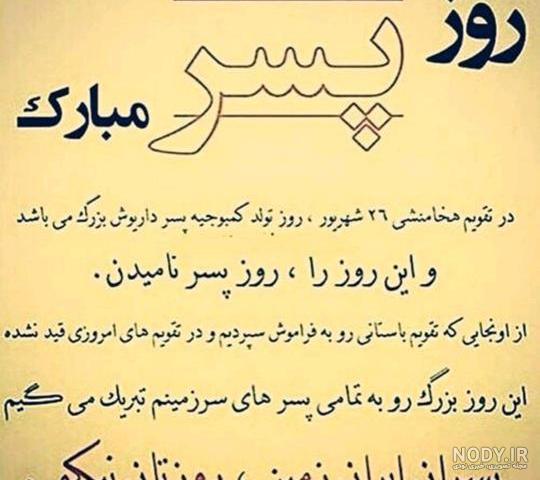 روز
پسر
مبارک
در تقویم هخامنشی ۲۶ شهریور ، روز تولد کمبوجیه پسر داریوش بزرگ می باشد
و این روز را ، روز پسر نامیدن .
از اونجایی که تقویم باستانی رو به فراموش سپردیم و در تقویم های امروزی قید نشده
این روز بزرگ رو به تمامی پسر های سرزمینم تبریک می گیم
پسران ایران زمین ، روزتان نیکو
NODY.IR
مجله تصویری، خبری نودی